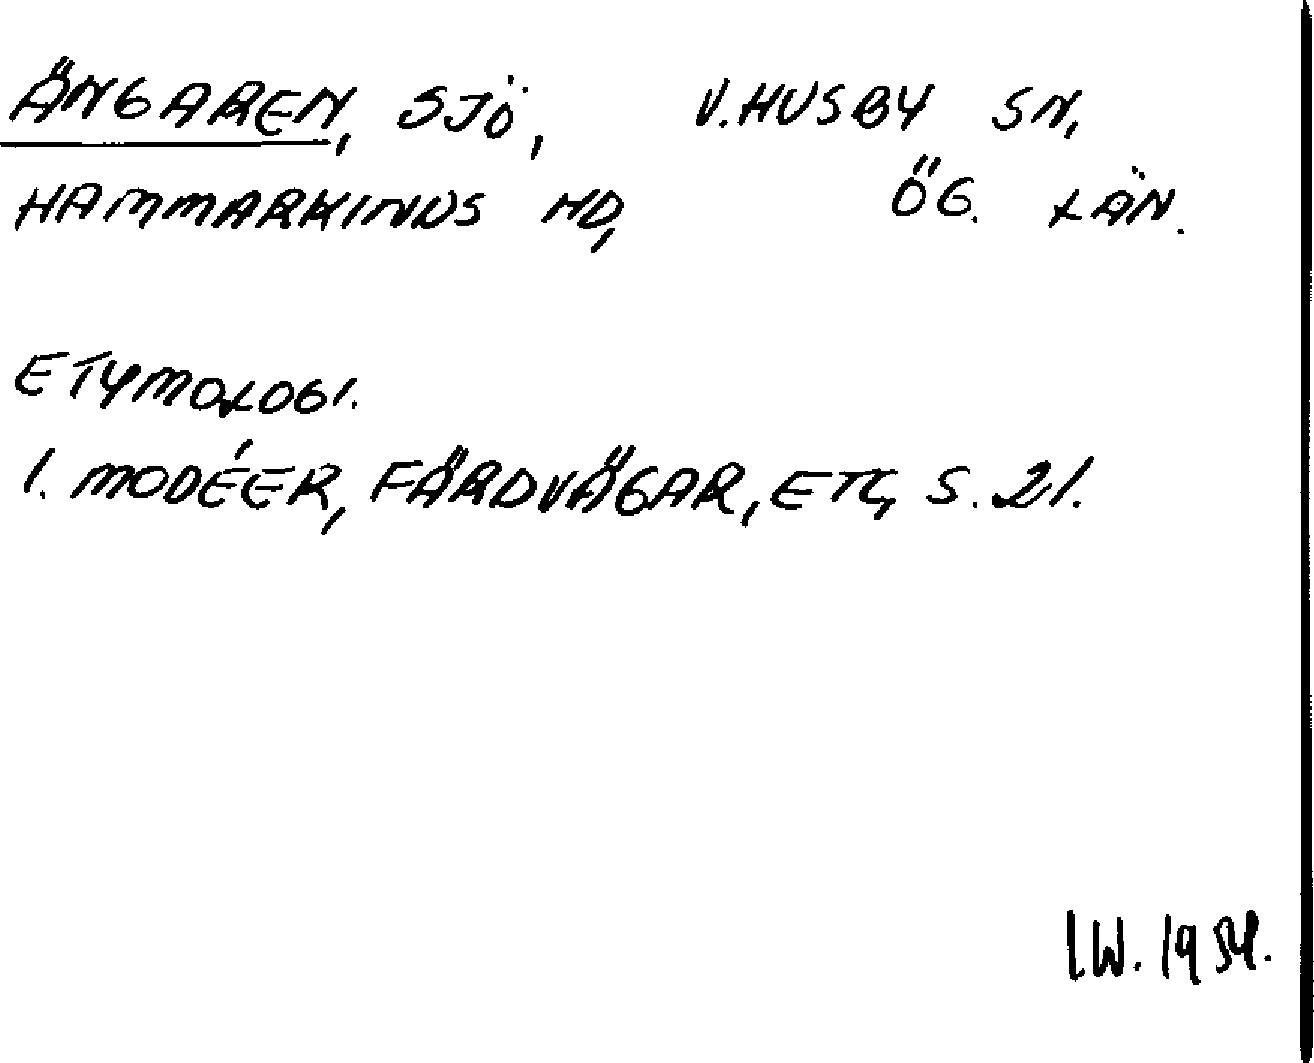 ÄNGAREN, SJÖ, V. HUSBY SN,
HAMMARKINDS HD, ÖG. LÄN.
ETYMOLOGI.
1. MODÉER, FÄRDVÄGAR, ETC, S. 21.
I.W. 1954.